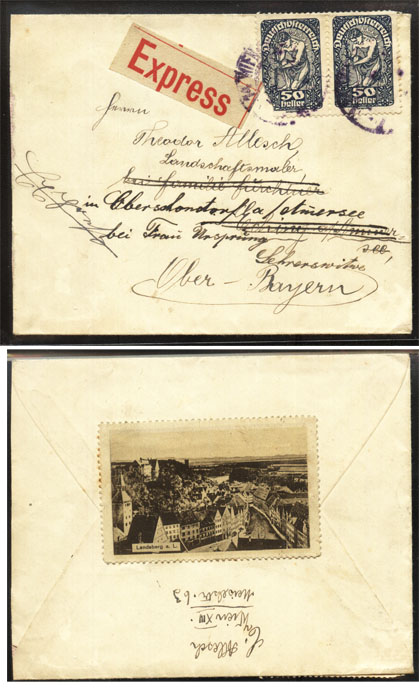 Express
Deutschösterreich
50
heller
Deutschösterreich
50
heller
Herrn
Theodor Allesch
Landschaftsmaler
bei Familie
in Oberschondorf a/Ammersee
bei Frau Ursprung
see
Lehrerswitwe
Ober-Bayern
Landsberg a. L.
Allesch
Wien XIII.
63